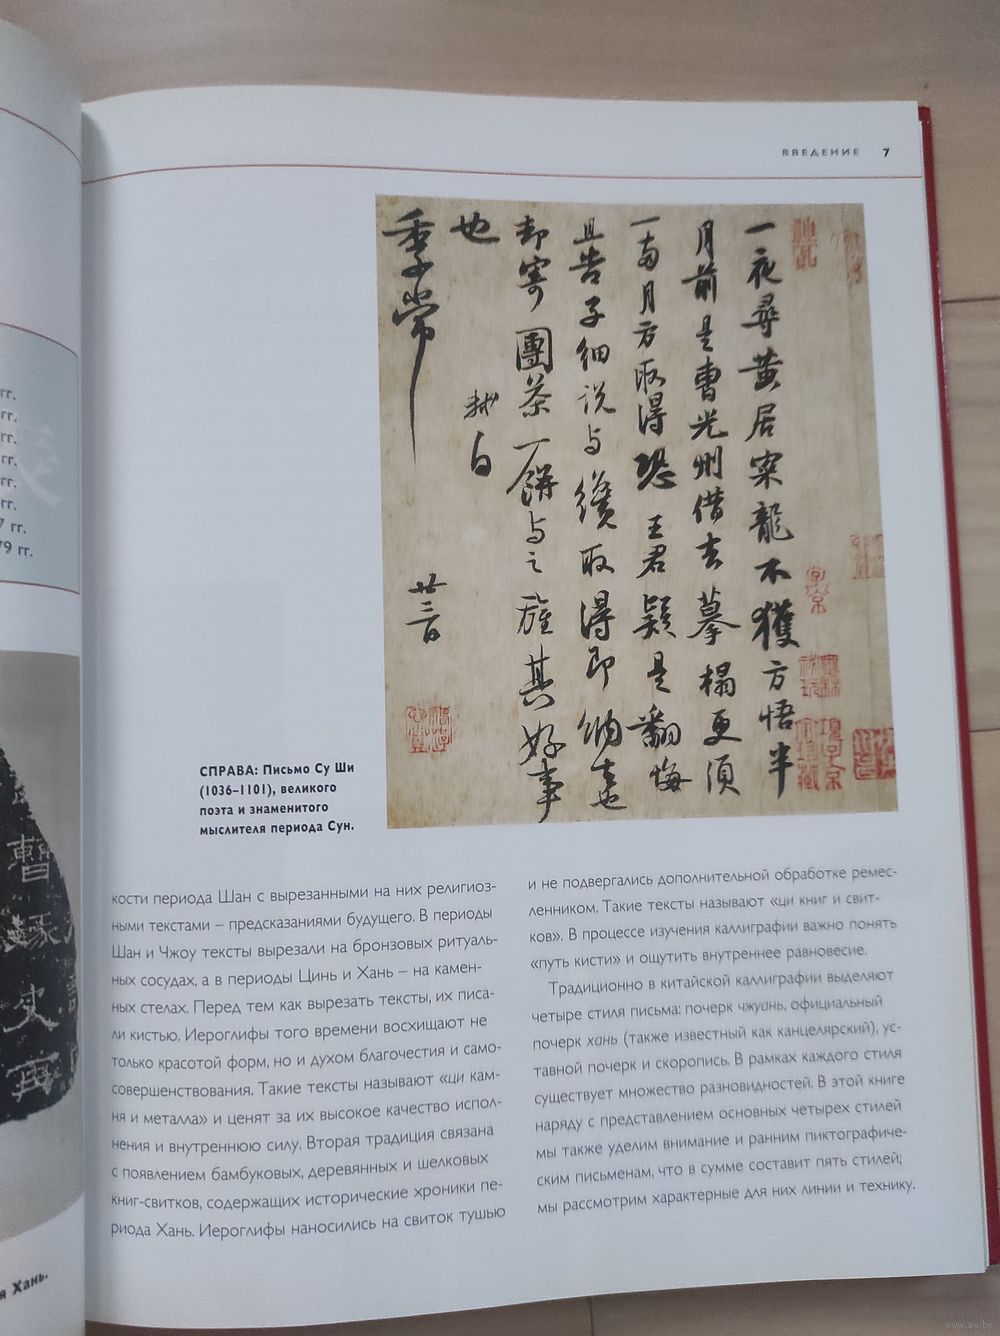 ВВЕДЕНИЕ 7
гг.
гг.
гг.
гг.
гг.
гг.
7 гг.
79 гг.
一夜尋黄居寀龍不獲方悟半
月前是曹光州借去摹榻更須
一兩月方取得恐王君疑是翻悔
且告子細說与纔取得即納去也
却寄團茶一餅与之旌其好事
也
軾白
季常
廿三日
СПРАВА: Письмо Су Ши
(1036–1101), великого
поэта и знаменитого
мыслителя периода Сун.
кости периода Шан с вырезанными на них религиоз-
ными текстами – предсказаниями будущего. В периоды
Шан и Чжоу тексты вырезали на бронзовых ритуаль-
ных сосудах, а в периоды Цинь и Хань – на камен-
ных стелах. Перед тем как вырезать тексты, их писа-
ли кистью. Иероглифы того времени восхищают не
только красотой форм, но и духом благочестия и само-
совершенствования. Такие тексты называют «ци кам-
ня и металла» и ценят за их высокое качество испол-
нения и внутреннюю силу. Вторая традиция связана
с появлением бамбуковых, деревянных и шелковых
книг-свитков, содержащих исторические хроники пе-
риода Хань. Иероглифы наносились на свиток тушью
и не подвергались дополнительной обработке ремес-
ленником. Такие тексты называют «ци книг и свит-
ков». В процессе изучения каллиграфии важно понять
«путь кисти» и ощутить внутреннее равновесие.
Традиционно в китайской каллиграфии выделяют
четыре стиля письма: почерк чжуань, официальный
почерк хань (также известный как канцелярский), ус-
тавной почерк и скоропись. В рамках каждого стиля
существует множество разновидностей. В этой книге
наряду с представлением основных четырех стилей
мы также уделим внимание и ранним пиктографиче-
ским письменам, что в сумме составит пять стилей;
мы рассмотрим характерные для них линии и технику.
я Хань.
www.ay.by